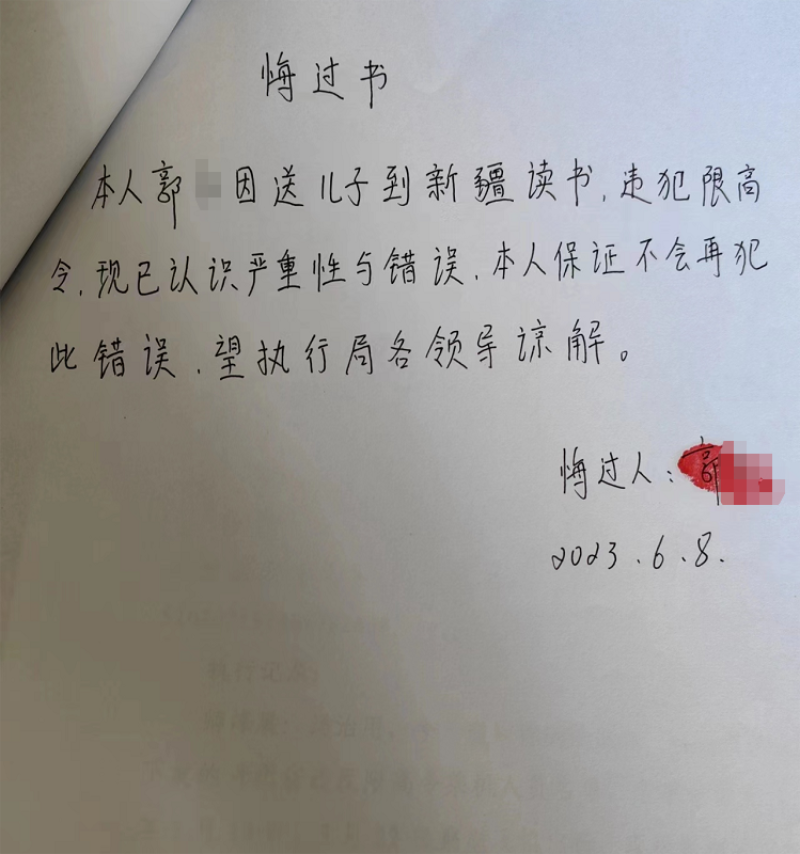 悔过书
本人郭 因送儿子到新疆读书,违犯限高
令,现已认识严重性与错误,本人保证不会再犯
此错误,望执行局各领导谅解。
悔过人:郭
2023.6.8.
执行记录: